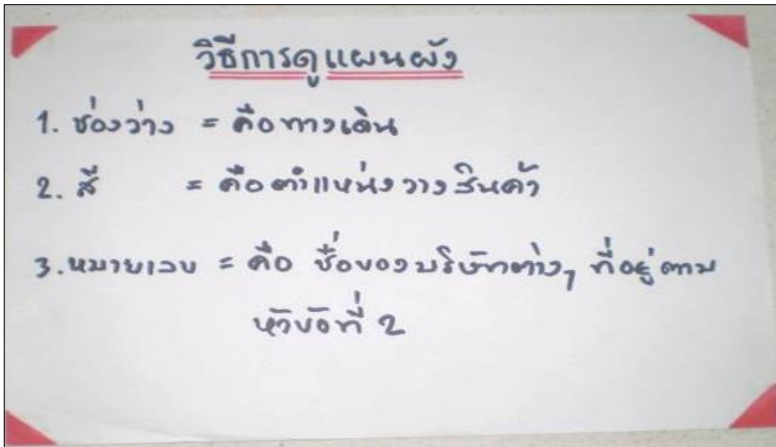 วิธีการดูแผนผัง
1. ช่องว่าง = คือทางเดิน
2. สี = คือตำแหน่งวางสินค้า
3. หมายเลข = คือ ชื่อของบริษัทต่างๆ ที่อยู่ตาม
หัวข้อที่ 2